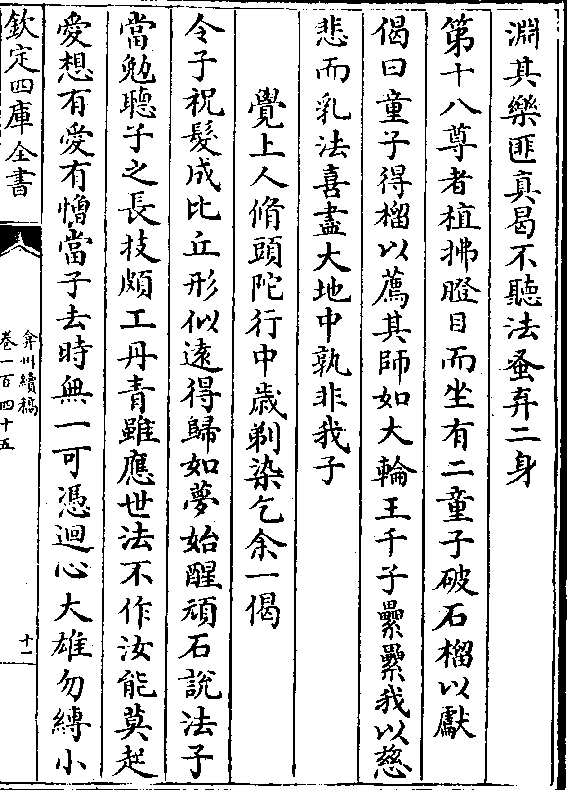 淵其樂匪真曷不聽法蚤弃二身
第十八尊者植拂瞪目而坐有二童子破石榴以獻
偈曰童子得榴以薦其師如大輪王千子纍纍我以慈
悲而乳法喜盡大地中孰非我子
覺上人脩頭陀行中歳剃染乞余一偈
令子祝髮成比丘形似遠得歸如夢始醒頑石說法子
當勉聽子之長技頗工丹青雖應世法不作汝能莫起
愛想有愛有憎當子去時無一可憑迴心大雄勿縛小
欽定四庫全書
弇州續稿
卷一百四十五
十一